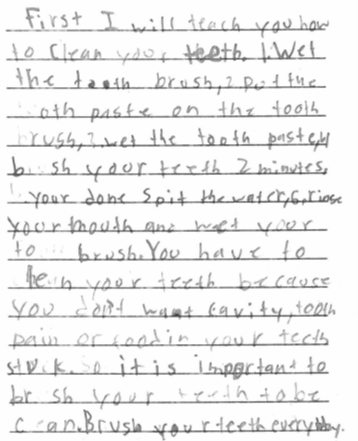 First I will teach you how
to Clean your teeth. 1.Wet
the tooth brush,2 Put the
oth paste on the tooth
rush,3.wet the tooth paste,4
b sh your teeth 2 minutes,
your done spit the water,6,rinse
your mouth and wet your
to brush.You have to
lean your teeth because
you don't want cavity,tooth
pain or food in your teeth
stuck.so it is important to
br sh your teeth to be
c ean.Brush your teeth everyday.